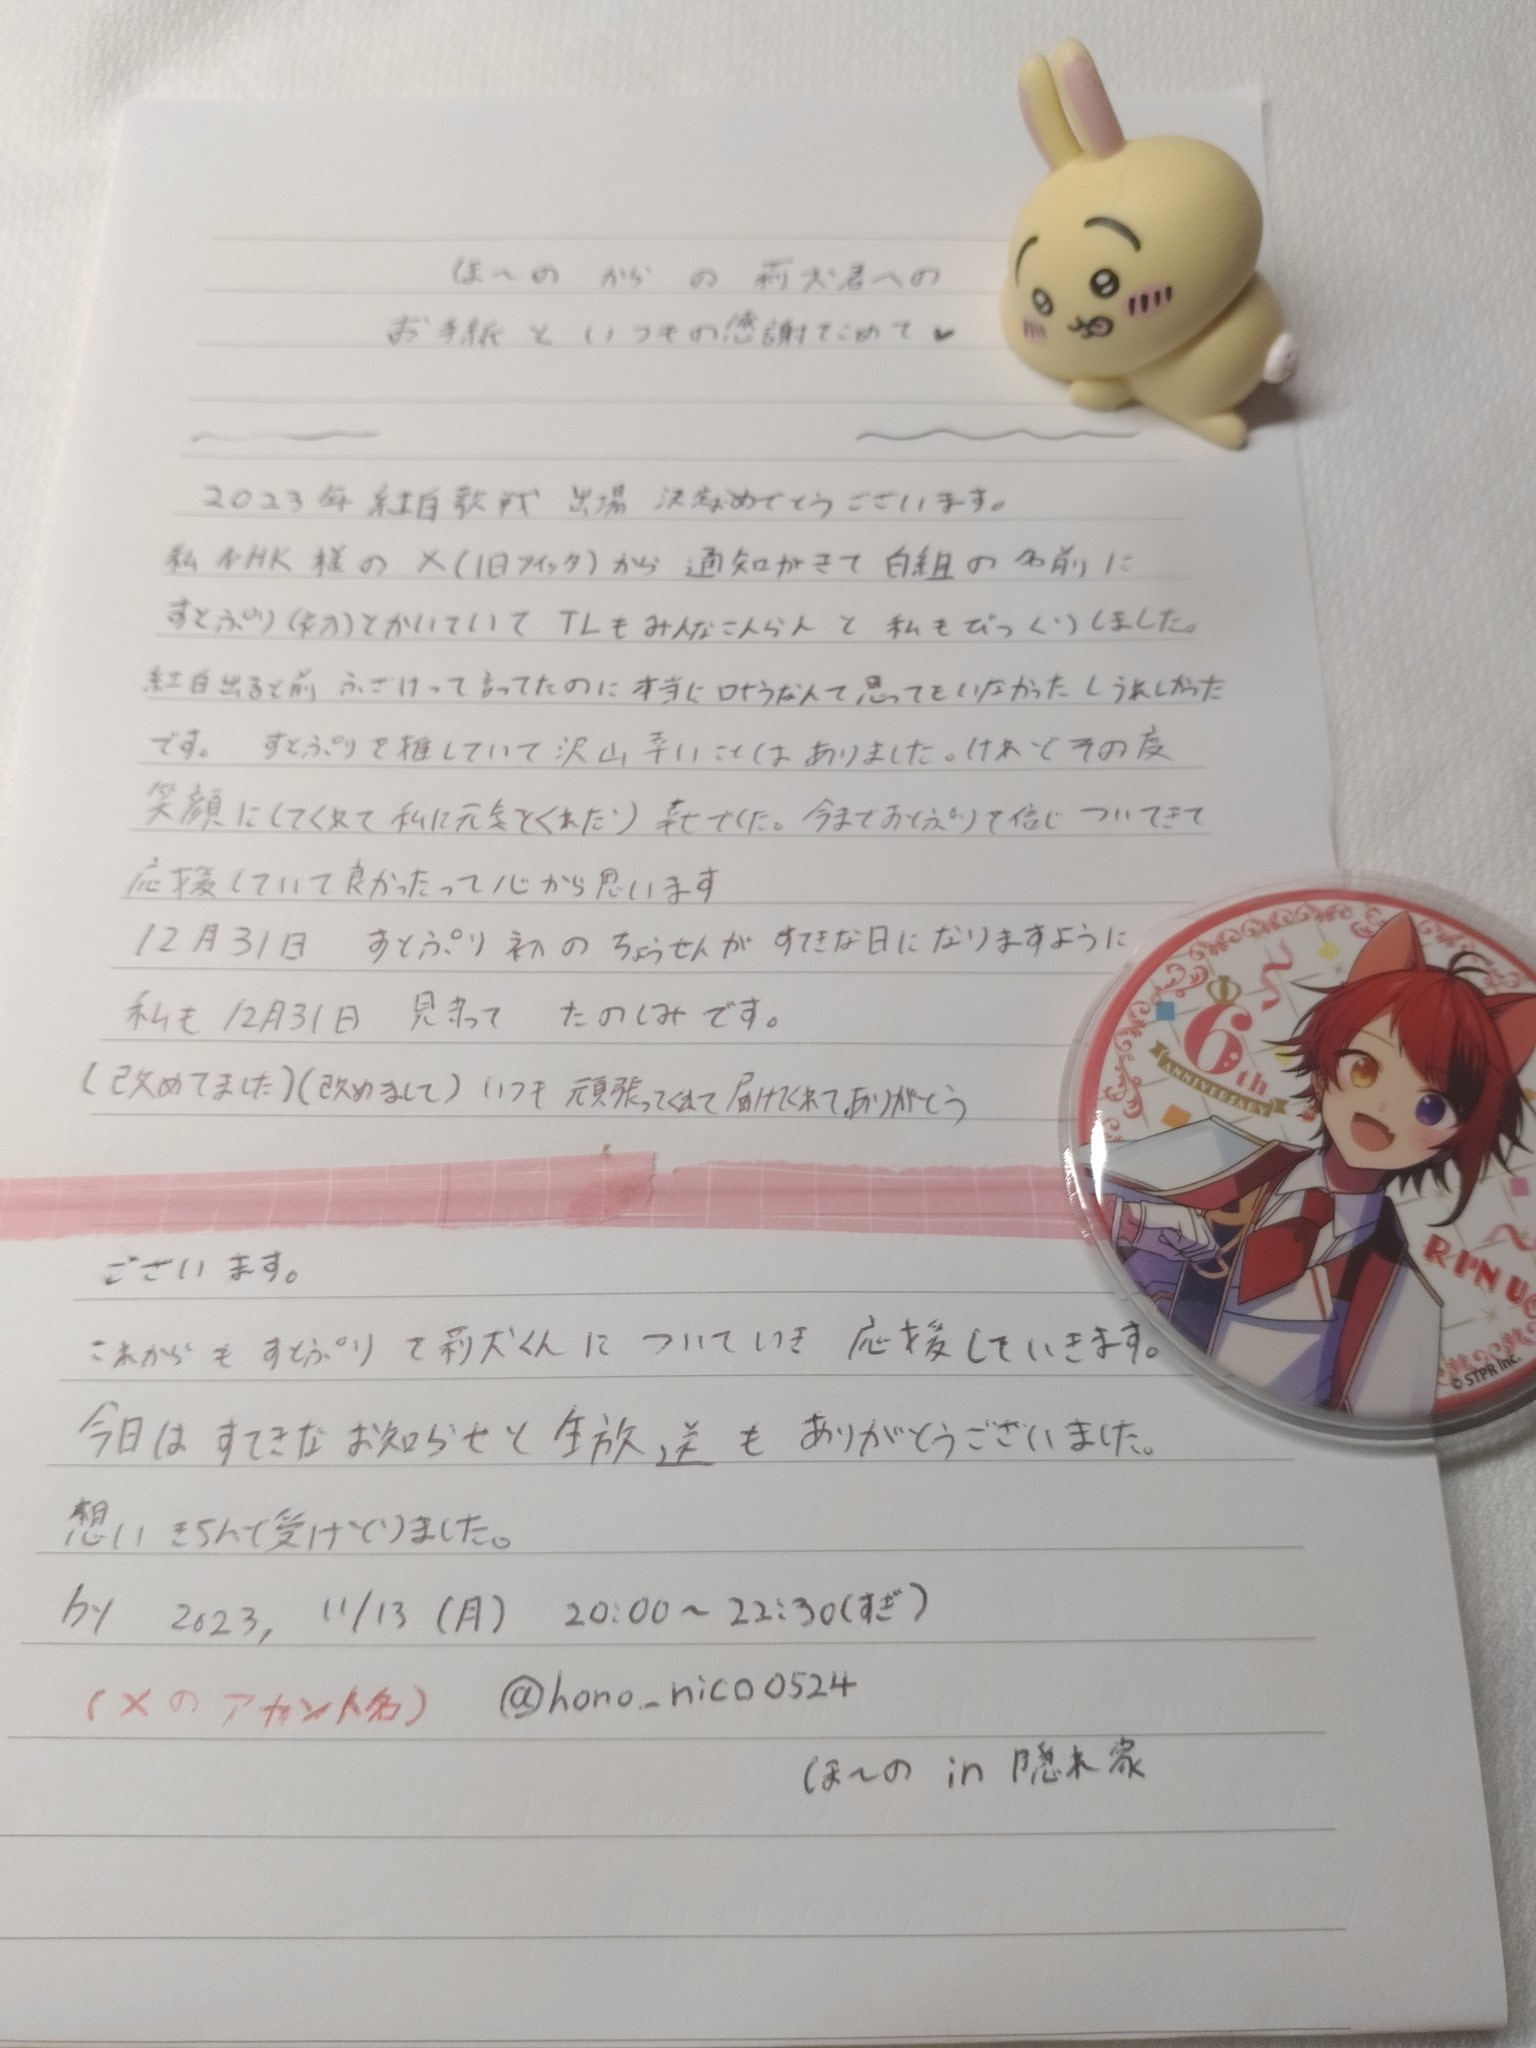 ほ〜の からの 莉犬君への
お手紙と いつもの感謝をこめて♥
2023年 紅白歌戦 出場 決定おめでとうございます。
私 NHK様の X(旧ツイッタ)から 通知がきて 白組の名前に
すとぷり(初)とかいていて TLもみんなこんらんと 私もびっくりしました。
紅白出ると前 ふざけって言ってたのに 本当に叶うなんて思ってもいなかったしうれしかった
です。 すとぷりを推していて 沢山 辛いことはありました。けれどその度
笑顔にしてくれて 私に元気をくれたり 幸せでした。今まですとぷりを信じ ついてきて
応援していて良かったって心から思います
12月31日 すとぷり 初の ちょうせんが すてきな日になりますように
私も 12月31日 見守って たのしみです。
(改めてました)(改めまして) いつも 頑張ってくれて 届けてくれて、ありがとう
ございます。
これからも すとぷり を 莉犬くんに ついていき 応援していきます。
今日は すてきな お知らせと 生放送も ありがとうございました。
想い きちんと受けとりました。
by 2023, 11/13 (月) 20:00〜22:30(すぎ)
(Xの アカウント名) @hono_nico0524
ほ〜の in 隠れ家
6th
ANNIVERSARY
© STPR Inc.